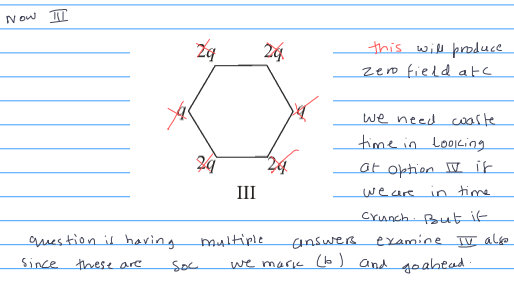 Now III
2q 2q
this will produce
zero field at C
q q
we need waste
time in looking
2q 2q
at option IV if
III
we are in time
crunch. But if
question is having multiple answers examine IV also
since these are SOC we mark (b) and goahead.